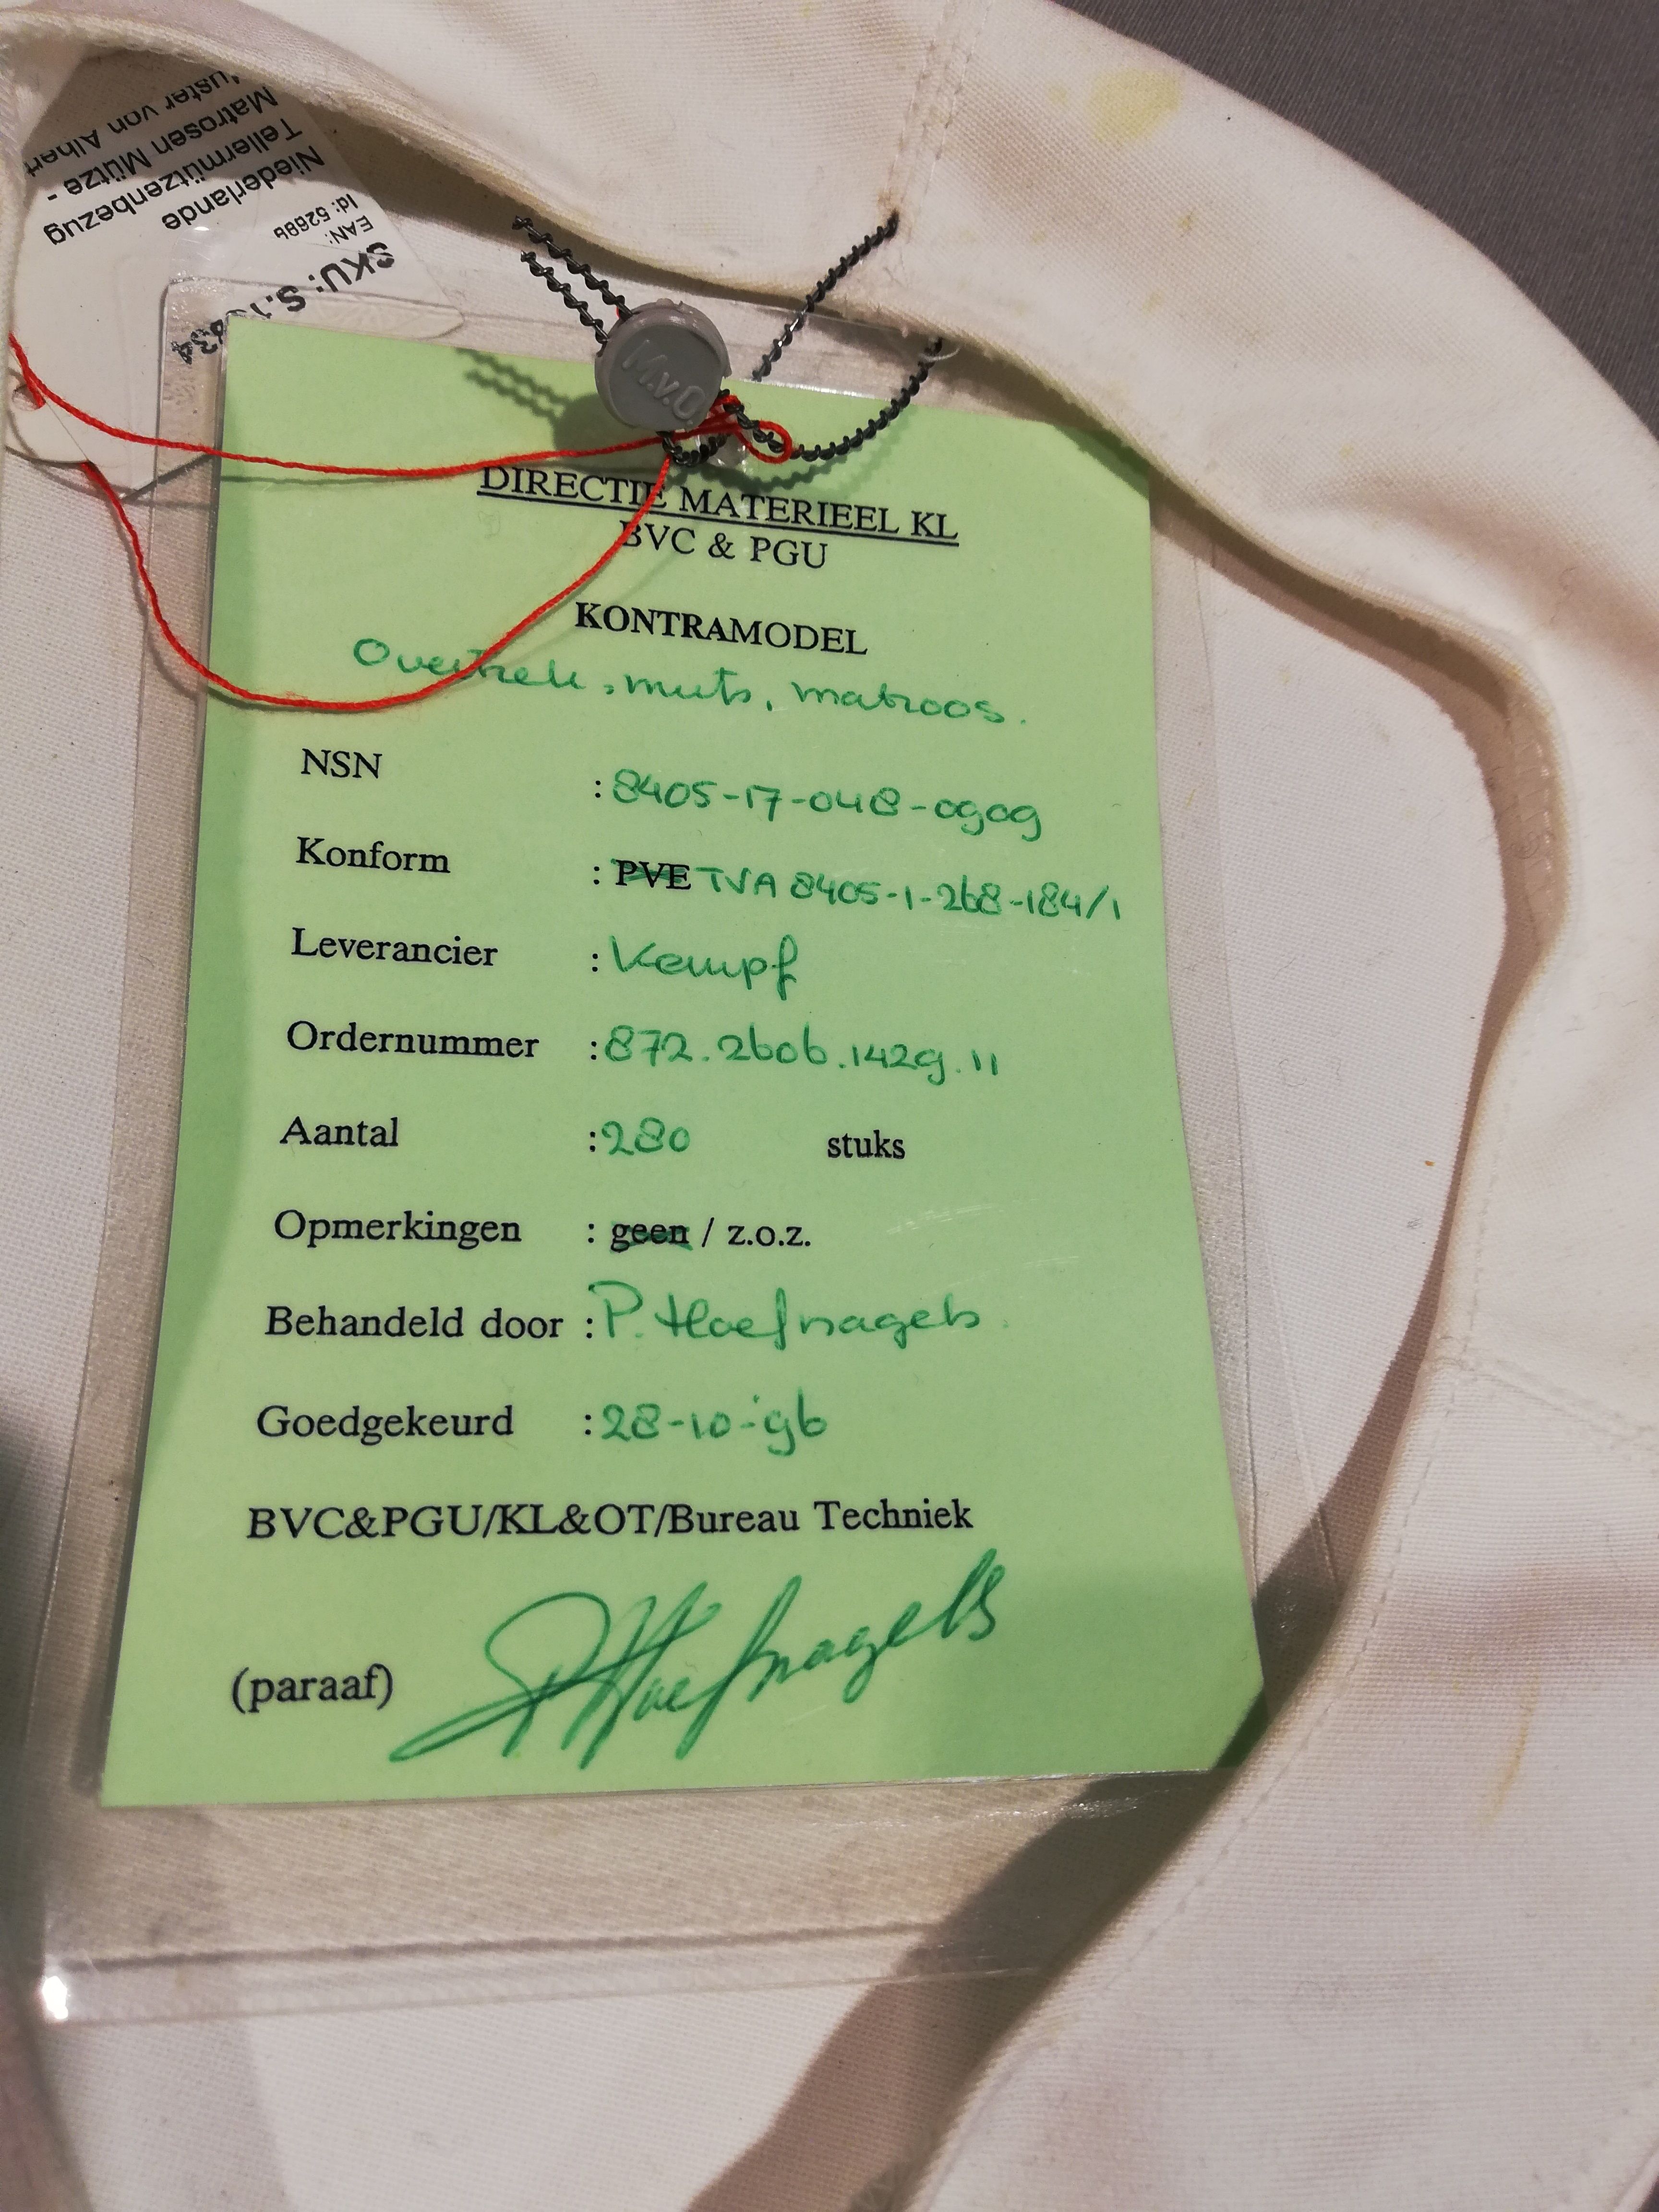 Muster von Albert
Matrosen Mütze -
Tellermützenbezug
Niederlande
EAN:
SKU:
M.v.O
DIRECTIE MATERIEEL KL
BVC & PGU
KONTRAMODEL
Overtrek, muts, matroos.
NSN : 8405-17-048-0909
Konform : PVE TVA 8405-1-268-184/1
Leverancier : Kempf
Ordernummer : 872.2606.1429.11
Aantal : 280 stuks
Opmerkingen : geen / z.o.z.
Behandeld door : P. Hoefnagels
Goedgekeurd : 28-10-'96
BVC&PGU/KL&OT/Bureau Techniek
(paraaf) PHoefnagels